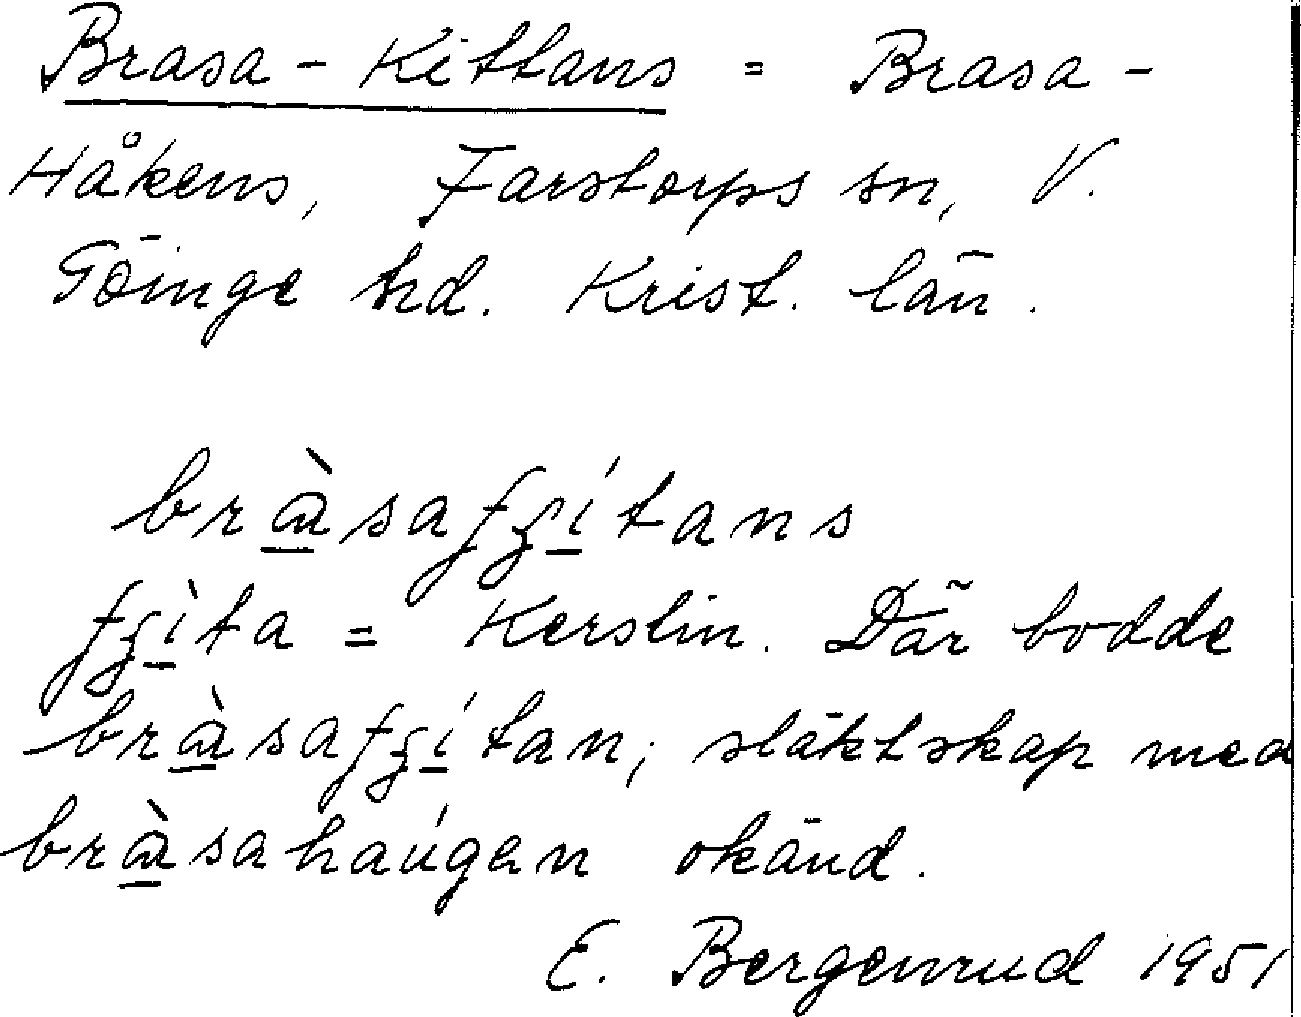 Brasa-Kittans = Brasa-
Håkens, Farstorps sn, V.
Göinge hd. Krist. län.
bràsafʒítans
fʒìta = Kerstin. Där bodde
bràsafʒítan, släktskap med
bràsahaúgan okänd.
E. Bergenrud 1951